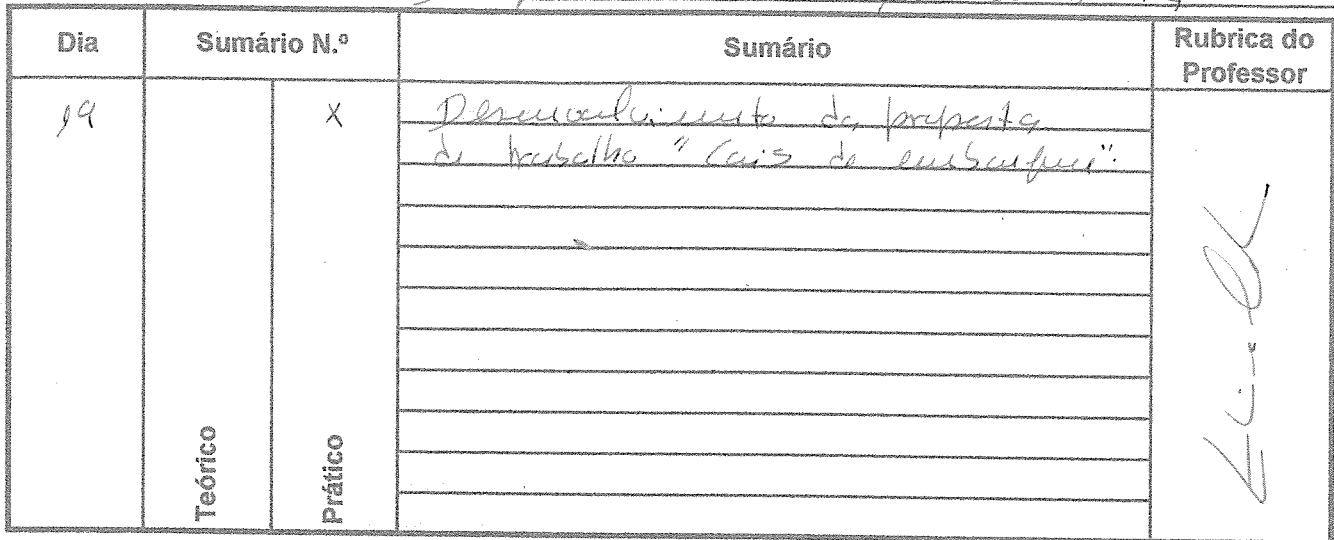 Dia
Sumário N.º
Sumário
Rubrica do
Professor
19
X
Desenvolvimento da proposta
de trabalho "Cais de embarque".
Teórico
Prático